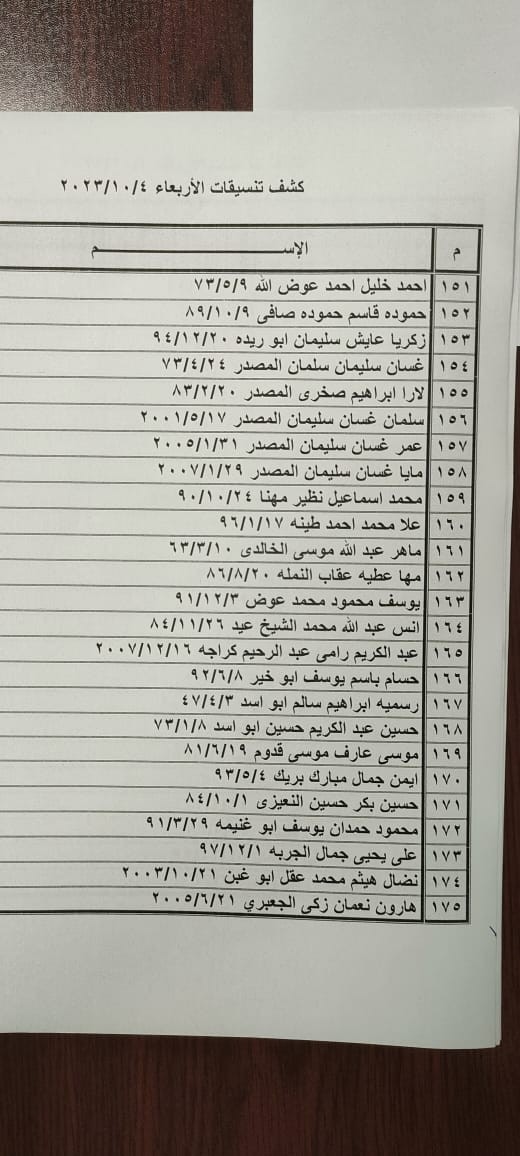 كشف تنسيقات الأربعاء ٢٠٢٣/١٠/٤
م الإســـــــــــــــــــــــــم
١٥١ احمد خليل احمد عوض الله ٧٣/٥/٩
١٥٢ حموده قاسم حموده صافى ٨٩/١٠/٩
١٥٣ زكريا عايش سليمان ابو ريده ٩٤/١٢/٢٠
١٥٤ غسان سليمان سلمان المصدر ٧٣/٤/٢٤
١٥٥ لارا ابراهيم صخرى المصدر ٨٣/٢/٢٠
١٥٦ سلمان غسان سليمان المصدر ٢٠٠١/٥/١٧
١٥٧ عمر غسان سليمان المصدر ٢٠٠٥/١/٣١
١٥٨ مايا غسان سليمان المصدر ٢٠٠٧/١/٢٩
١٥٩ محمد اسماعيل نظير مهنا ٩٠/١٠/٢٤
١٦٠ علا محمد احمد طينه ٩٦/١/١٧
١٦١ ماهر عبد الله موسى الخالدى ٦٣/٣/١٠
١٦٢ مها عطيه عقاب النمله ٨٦/٨/٢٠
١٦٣ يوسف محمود محمد عوض ٩١/١٢/٣
١٦٤ انس عبد الله محمد الشيخ عيد ٨٤/١١/٢٦
١٦٥ عبد الكريم رامى عبد الرحيم كراجه ٢٠٠٧/١٢/١٦
١٦٦ حسام باسم يوسف ابو خير ٩٢/٦/٨
١٦٧ رسميه ابراهيم سالم ابو اسد ٤٧/٤/٣
١٦٨ حسين عبد الكريم حسين ابو اسد ٧٣/١/٨
١٦٩ موسى عارف موسى قدوم ٨١/٦/١٩
١٧٠ ايمن جمال مبارك بريك ٩٣/٥/٤
١٧١ حسين بكر حسين النعيزى ٨٤/١٠/١
١٧٢ محمود حمدان يوسف ابو غنيمه ٩١/٣/٢٩
١٧٣ على يحيى جمال الجربه ٩٧/١٢/١
١٧٤ نضال هيثم محمد عقل ابو غبن ٢٠٠٣/١٠/٢١
١٧٥ هارون نعمان زكى الجعبري ٢٠٠٥/٦/٢١